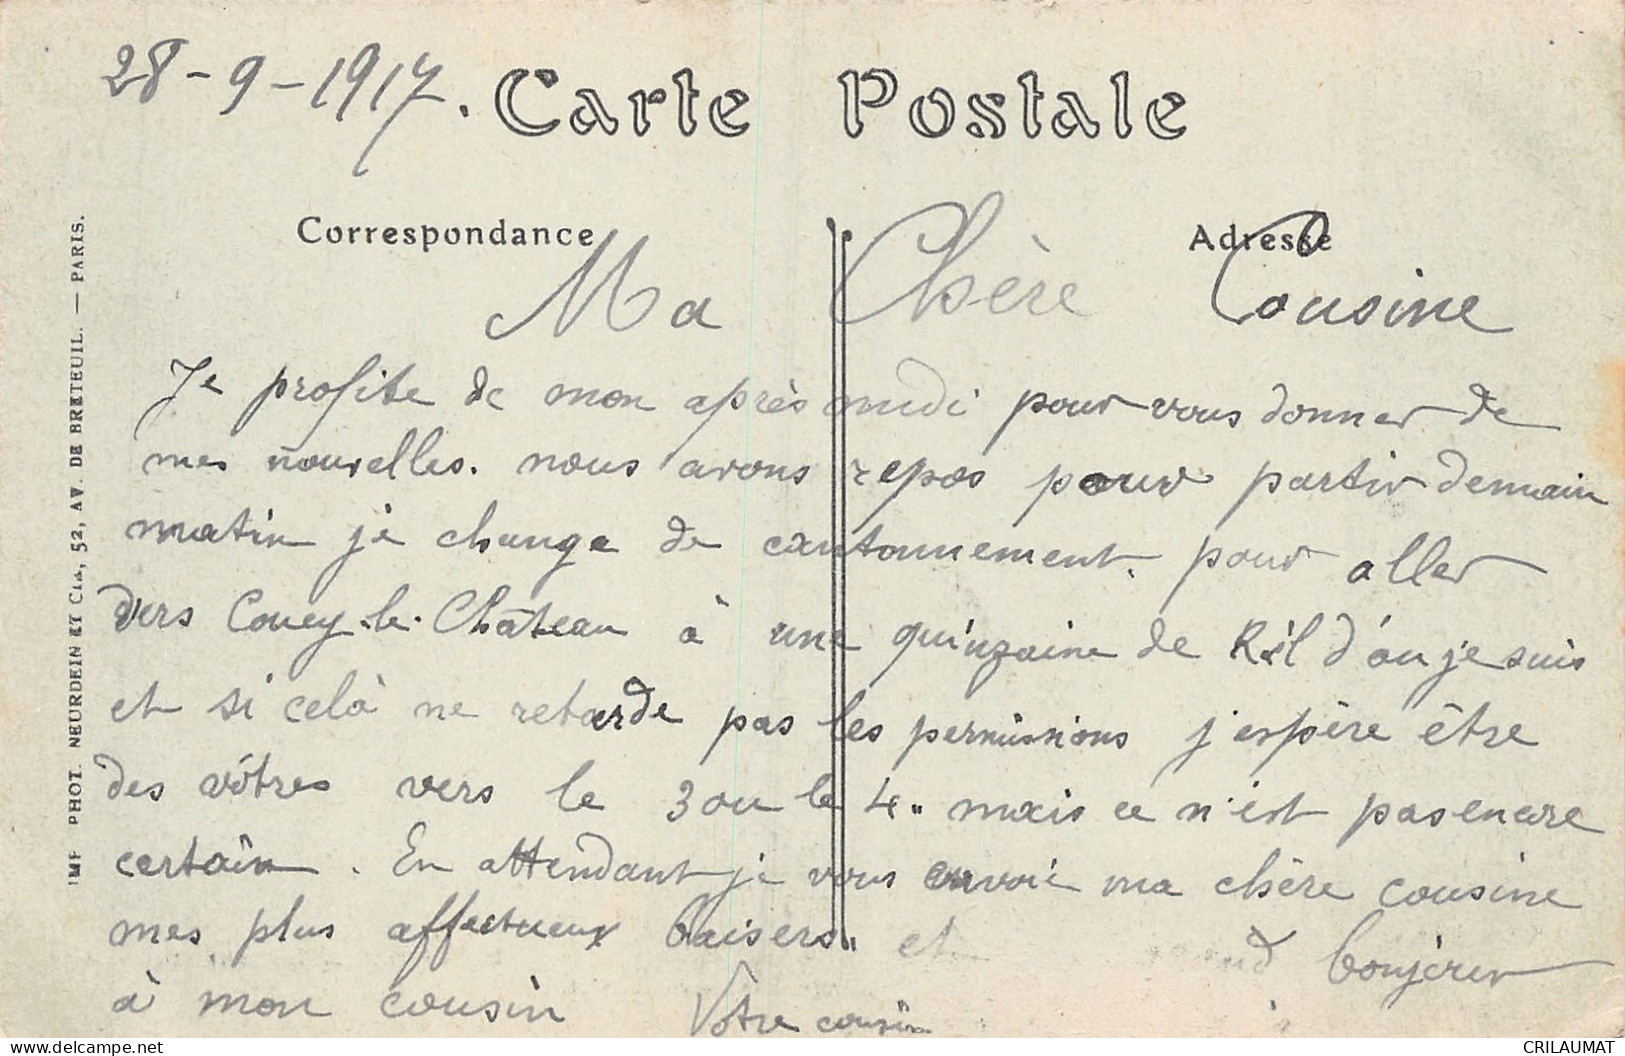 28-9-1917.
Carte Postale
Correspondance
Adresse
Ma Chère Cousine
Je profite de mon après midi pour vous donner de
mes nouvelles. nous avons repos pour partir demain
matin je change de cantonnement. pour aller
vers Coucy-le-Château à une quinzaine de Kil d'ou je suis
et si celà ne retarde pas les permissions j'espère être
des vôtres vers le 3 ou le 4.. mais ce n'est pas encore
certain. En attendant je vous envoie ma chère cousine
mes plus affectueux baisers.. et
à mon cousin
Vôtre cousin
IMP PHOT. NEURDEIN ET CIE, 52, AV. DE BRETEUIL. — PARIS.
delcampe.net
CRILAUMAT